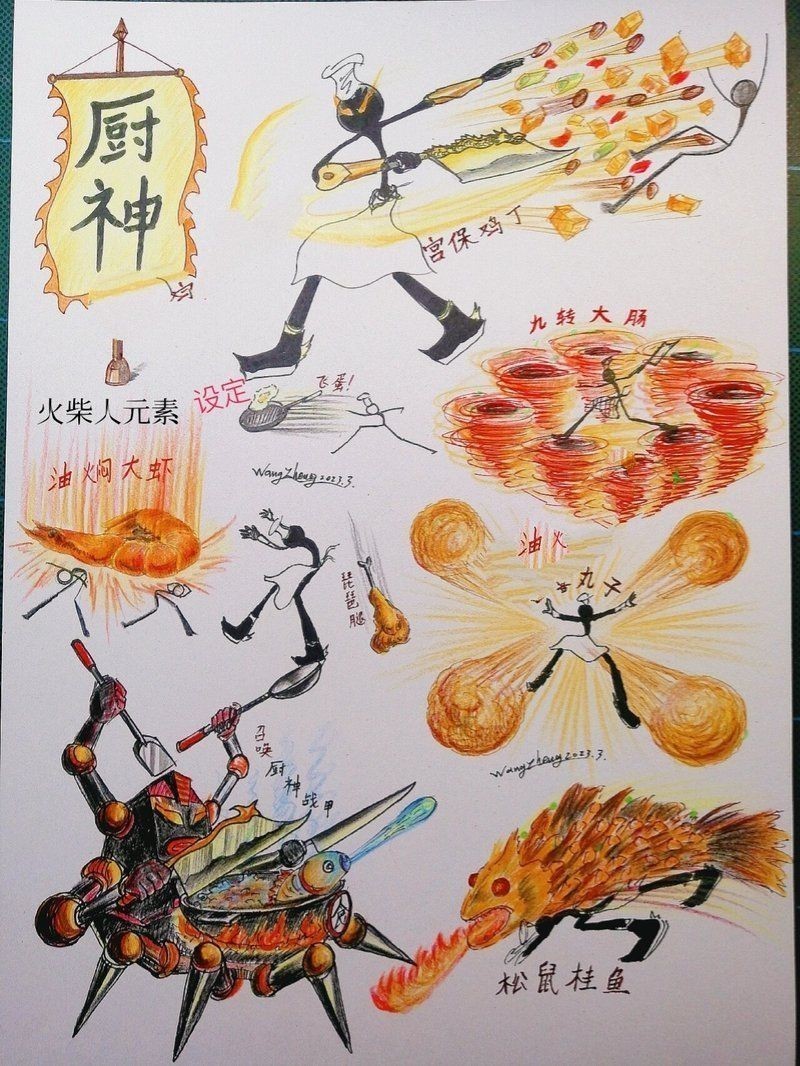 厨神
宫保鸡丁
九转大肠
火柴人元素
设定
飞蛋!
WangZheng 2023.3.
油焖大虾
琵琶腿
油火
丸子
WangZheng 2023.3.
召唤厨神战甲
食
松鼠桂鱼